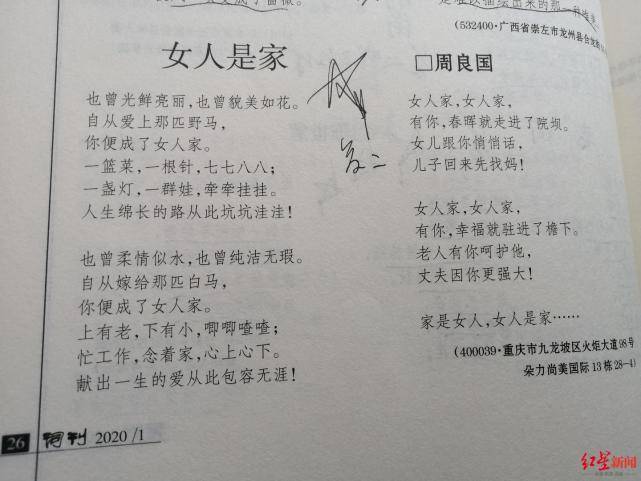 (532400·广西省崇左市龙州县
女人是家
□周良国
也曾光鲜亮丽,也曾貌美如花。
自从爱上那匹野马,
你便成了女人家。
一篮菜,一根针,七七八八;
一盏灯,一群娃,牵牵挂挂。
人生绵长的路从此坑坑洼洼!
也曾柔情似水,也曾纯洁无瑕。
自从嫁给那匹白马,
你便成了女人家。
上有老,下有小,唧唧喳喳;
忙工作,念着家,心上心下。
献出一生的爱从此包容无涯!
女人家,女人家,
有你,春晖就走进了院坝。
女儿跟你悄悄话,
儿子回来先找妈!
女人家,女人家,
有你,幸福就驻进了檐下。
老人有你呵护他,
丈夫因你更强大!
家是女人,女人是家……
(400039·重庆市九龙坡区火炬大道98号
朵力尚美国际13栋28-4)
26 词刊 2020/1
红星新闻